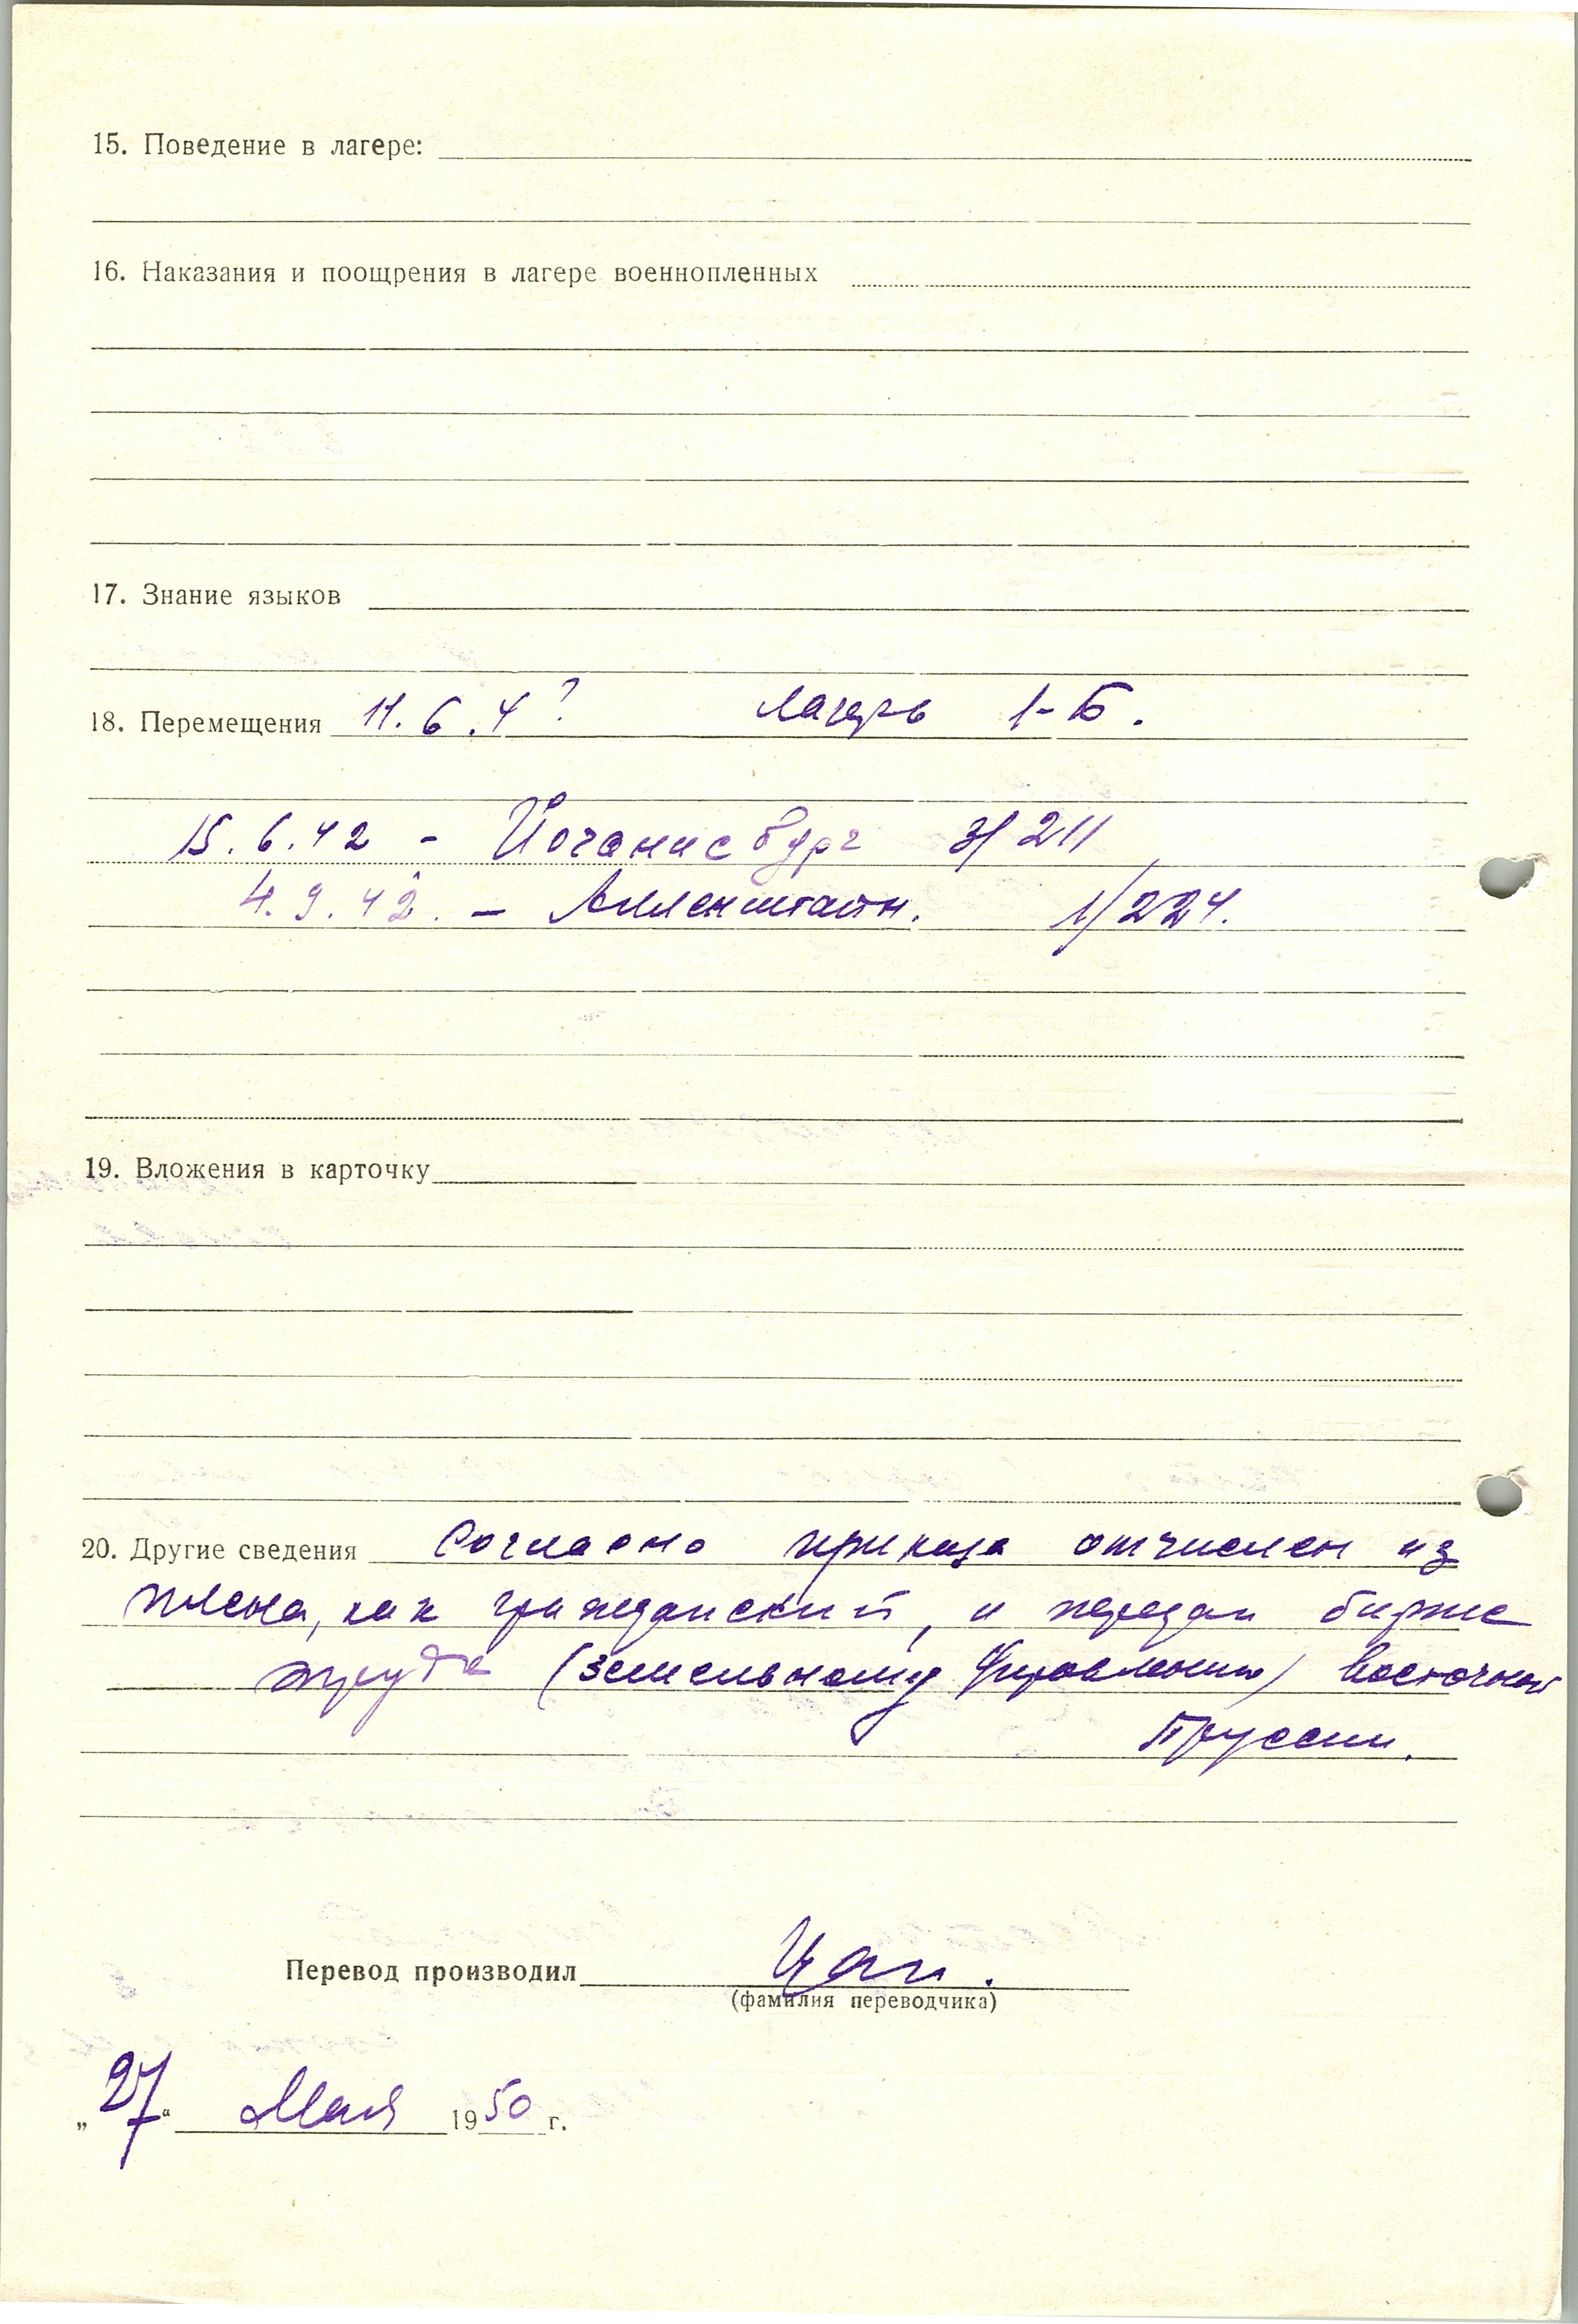 15. Поведение в лагере:
16. Наказания и поощрения в лагере военнопленных
17. Знание языков
18. Перемещения 11.6.4? лагерь 1-Б.
15.6.42 - Йоганисбург 3/211
4.9.42. - Алленштайн. 1/224.
19. Вложения в карточку
20. Другие сведения Согласно приказа отчислен из
плена, как гражданский, и передан бирже
труда (земельному управлению) Восточной
Пруссии.
Перевод производил Цап.
(фамилия переводчика)
„27“ Мая 1950 г.